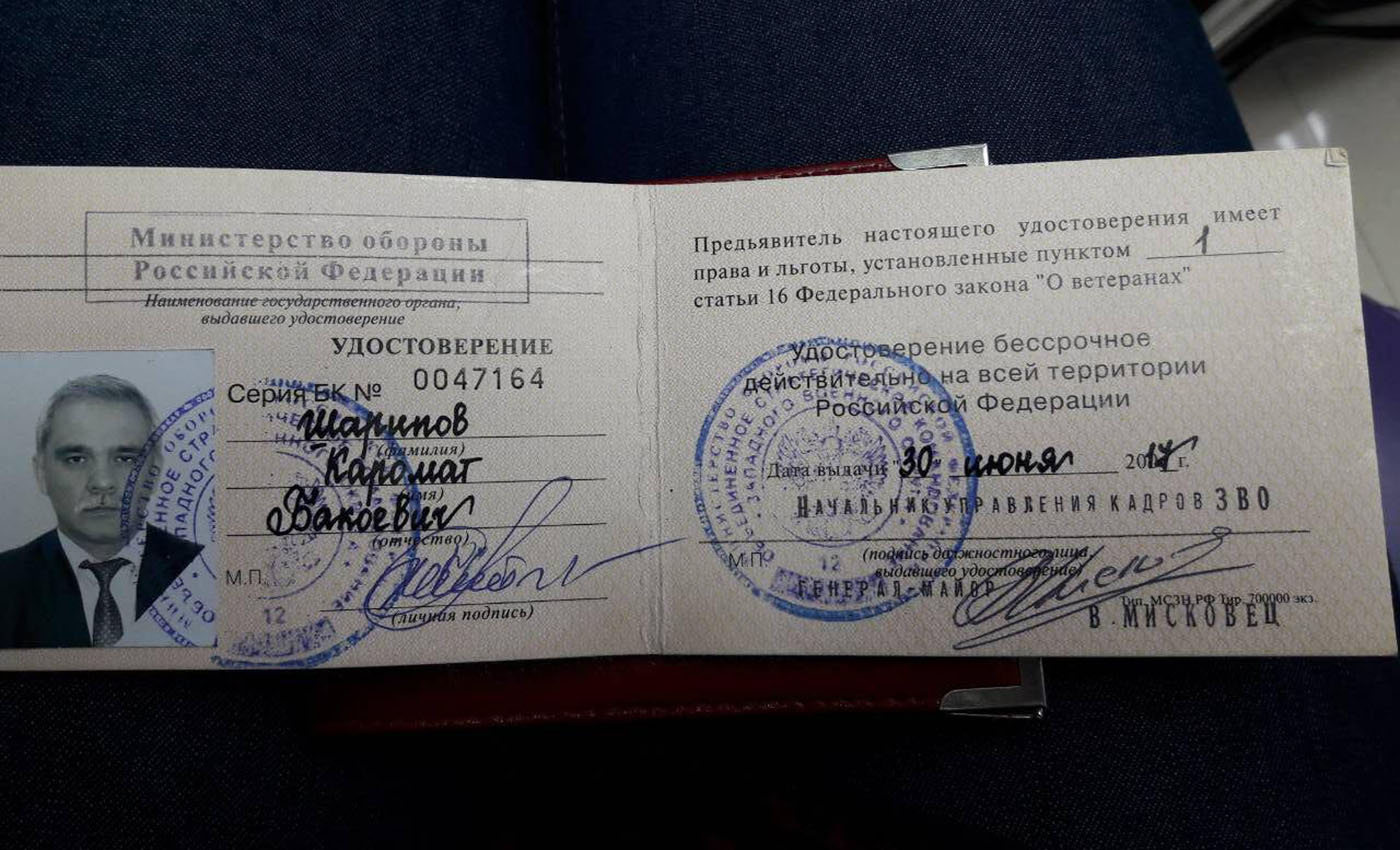 Министерство обороны
Российской Федерации
Наименование государственного органа,
выдавшего удостоверение
УДОСТОВЕРЕНИЕ
Серия БК № 0047164
Шарипов
(фамилия)
Каромат
(имя)
Бакоевич
(отчество)
М.П.
(личная подпись)
12
Предьявитель настоящего удостоверения имеет
права и льготы, установленные пунктом 1
статьи 16 Федерального закона "О ветеранах"
Удостоверение бессрочное
действительно на всей территории
Российской Федерации
Дата выдачи "30" июня 2017 г.
НАЧАЛЬНИК УПРАВЛЕНИЯ КАДРОВ ЗВО
(подпись должностного лица,
выдавшего удостоверение)
М.П.
12
ГЕНЕРАЛ-МАЙОР
Тип. МСЗН РФ Тир. 700000 экз.
В.МИСКОВЕЦ